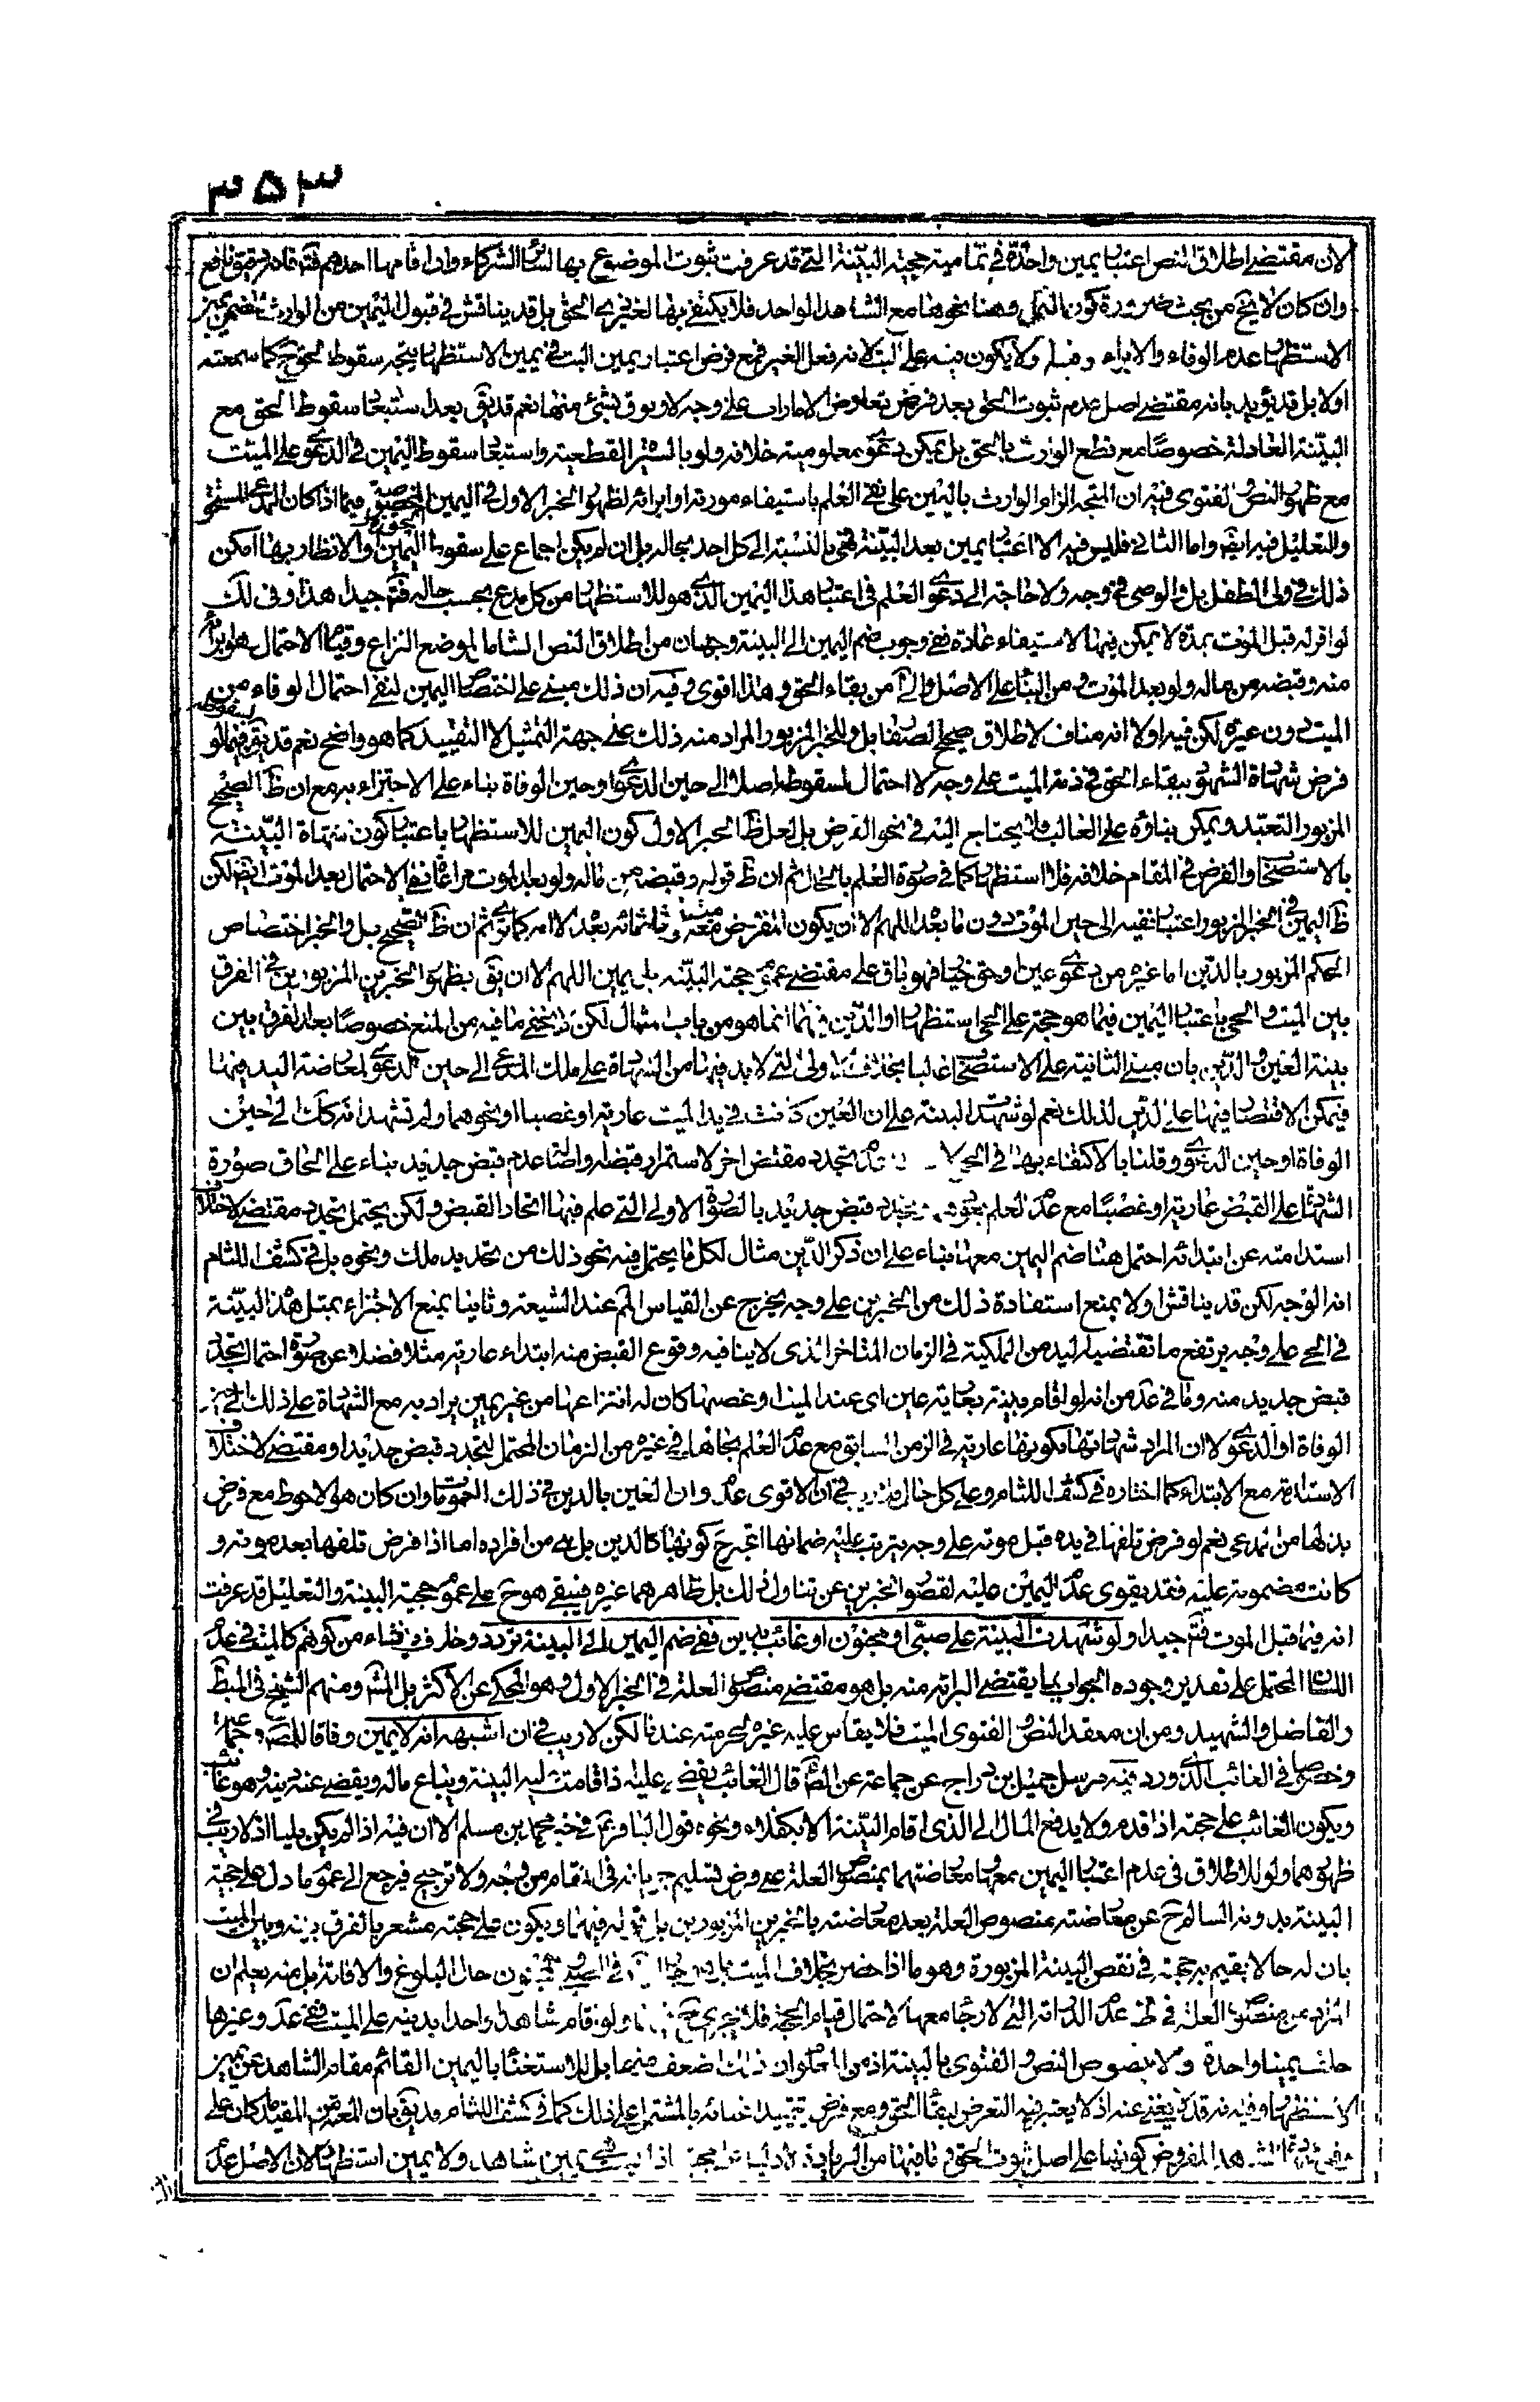 ٣٥٣
لان مقتضى اطلاق النص اعتبار يمين واحدة في تمامية حجية البينة التي قد عرفت ثبوت الموضوع بها لسائر الشركاء وان اقامها احدهم فتأمله
وان كان لا يخ من بحث ضرورة كون وهنا نحوها مع الشاهد الواحد فلا يكتفى بها لغير ذي الحق بل قد يناقش في قبول اليمين من الوارث
الاستظهار عدم الوفاء والابراء ولا يكون منه على البت لانه فعل الغير فمع فرض اعتبار يمين البت في يمين الاستظهار يتجه سقوط الحق ح كما سمعته
اولا بل قد يؤيد بانه مقتضى اصل عدم ثبوت الحق بعد فرض تعارض الامارات على وجه لا وثوق بشئ منها نعم قد يق بعد استبعاد سقوط الحق مع
البينة العادلة خصوصا مع قطع الوارث بالحق بل يمكن دعوى معلومية خلافه ولو بالسيرة القطعية واستبعاد سقوط اليمين في الدعوى على الميت
مع ظهور النص والفتوى فيه ان المتجه الزام الوارث باليمين على نفي العلم باستيفاء مورثه او ابرائه لظهور الخبر الاول في اليمين فيما اذا كان المدعي المستحق
والتعليل فيه ايضا واما الثاني فليس فيه الا اعتبار يمين بعد البينة فهي بالنسبة الى كل احد بحاله بل ان لم يكن اجماع على سقوط اليمين والانظار بها امكن
ذلك في ولي الطفل بل والوصي في وجه ولا حاجة الى دعوى العلم في اعتبار هذا اليمين الذي هو للاستظهار من كل مدع بحسب حاله فتأمل جيدا هذا وفي لك
لو اقر له قبل الموت بمدة لا يمكن فيها الاستيفاء عادة ففي وجوب ضم اليمين الى البينة وجهان من اطلاق النص الشامل لموضع النزاع وقيام الاحتمال
منه وقبضه من ماله ولو بعد الموت ومن البناء على الاصل من بقاء الحق وهذا اقوى وفيه ان ذلك مبني على اختصاص اليمين لنفي احتمال الوفاء من
الميت دون غيره لكن فيه اولا انه مناف لاطلاق صحيح الصفار بل وللخبر المزبور المراد منه ذلك على جهة التمثيل لا التقييد كما هو واضح نعم قد يق بسقوطه فيما لو
فرض شهادة الشهود ببقاء الحق في ذمة الميت على وجه لا احتمال لسقوطه اصلا الى حين الدعوى او حين الوفاة بناء على الاجتزاء به مع ان ظ الصحيح
المزبور التعبد ويمكن بناؤه على الغالب فلا يحتاج اليه في نحو الفرض بل لعل ظ الخبر الاول كون اليمين للاستظهار باعتبار كون شهادة البينة
بالاستصحاب والفرض في المقام خلافه فلا استظهار كما في صورة العلم بالحال ثم ان ظ قوله وقبضه من ماله ولو بعد الموت مراعاة نفي الاحتمال بعد الموت ايضا لكن
ظ اليمين في الخبر المزبور اعتبار نفيه الى حين الموت دون ما بعد اللهم الا ان يكون المفروض معه بعد الامر كما ترى ثم ان ظ الصحيح بل والخبر اختصاص
الحكم المزبور بالدين اما غيره من دعوى عين او حق خيار فهو باق على مقتضى عموم حجية البينة بلا يمين اللهم الا ان يق بظهور الخبرين المزبورين في الفرق
بين الميت والحي باعتبار اليمين فيما هو حجة على الحي استظهارا والدين فيهما انما هو من باب المثال لكن لا يخفى ما فيه من المنع خصوصا بعد الفرق بين
بينة العين والدين بان مبنى الثانية على الاستصحاب غالبا بخلاف الاولى التي لا بد فيها من الشهادة على ملك المدعي الى حين الدعوى لمعارضة اليد فيها
فيمكن الاقتصار فيها على الدين لذلك نعم لو شهدت البينة على ان العين كانت في يد الميت عارية او غصبا او نحوهما ولم تشهد انه كك الى حين
الوفاة او حين الدعوى وقلنا بالاكتفاء بها في تجدد مقتض اخر لاستمرار قبضه واصالة عدم قبض جديد بناء على الحاق صورة
الشهادة على القبض عارية او غصبا مع عدم العلم تجدد قبض جديد بالصورة الاولى التي علم فيها اتحاد القبض ولكن يحتمل تجدد مقتضى لاختلاف
استدامته عن ابتدائه احتمل هنا ضم اليمين معها بناء على ان ذكر الدين مثال لكل ما يحتمل فيه نحو ذلك من تجديد ملك ونحوه بل في كشف اللثام
انه الوجه لكن قد يناقش اولا بمنع استفادة ذلك من الخبرين على وجه يخرج عن القياس المحرم عند الشيعة وثانيا بمنع الاجتزاء بمثل هذه البينة
في الحي على وجه يرتفع ما تقتضيه اليد من الملكية في الزمان المتاخر الذي لا ينافيه وقوع القبض منه ابتداء عارية مثلا فضلا عن صورة احتمال تجدد
قبض جديد منه وما في عد من انه لو اقام بينة بعارية عين اي عند الميت او غصبها كان له انتزاعها من غير يمين يراد به مع الشهادة على ذلك الى حين
الوفاة او الدعوى لا ان المراد شهادتها بكونها عارية في الزمن السابق مع عدم العلم بحالها في غيره من الزمان المحتمل لتجدد قبض جديد او مقتضى لاختلاف
الاستدامة مع الابتداء كما اختاره في كشف اللثام وعلى كل حال في ان الاقوى عدم العين بالدين في ذلك وان كان هو الاحوط مع فرض
بذلها من المدعي نعم لو فرض تلفها في يده قبل موته على وجه يترتب عليه ضمانها اتجه ح كونها كالدين بل هي من افراده اما اذا فرض تلفها بعد موته و
كانت مضمونة عليه فقد يقوى عدم اليمين عليه لقصور الخبرين عن تناول ذلك بل ظاهرهما غيره فيبقى هو ح على عموم حجية البينة والتعليل قد عرفت
انه فيما قبل الموت فتأمل جيدا ولو شهدت البينة على صبي او مجنون او غائب بدين ففي ضم اليمين الى البينة تردد وخلاف ينشاء من كونهم كالميت في عدم
اللسان المحتمل على تقدير وجوده الجواب بما يقتضي البراءة منه بل هو مقتضى منصوص العلة في الخبر الاول وهو المحكي عن الاكثر بل المشهور ومنهم الشيخ في المبسوط
والفاضل والشهيد ومن ان معقد النص والفتوى الميت فلا يقاس عليه غيره لحرمته عندنا لكن لا ريب في ان اشبهه انه لا يمين وفاقا للمص وجماعة
وخصوصا في الغائب الذي ورد فيه مرسل جميل بن دراج عن جماعة عن الص قال الغائب يقضى عليه اذا قامت عليه البينة ويباع ماله ويقضى عنه دينه وهو غائب
ويكون الغائب على حجته اذا قدم ولا يدفع المال الى الذي اقام البينة الا بكفلاء ونحوه قول الباقر ع في خبر محمد بن مسلم الا ان فيه اذا لم يكن مليا اذ لا ريب في
ظهورهما ولو للاطلاق في عدم اعتبار اليمين معها ومعارضتهما بمنصوص العلة على فرض تسليم جريانه في المقام من وجه ولا ترجيح فيرجع الى عموم ما دل على حجية
البينة بدونه السالم ح عن معارضته بمنصوص العلة بعد معارضته بالخبرين المزبورين بل قوله فيهما ويكون على حجته مشعر بالفرق بينه وبين الميت
بان له حالا يقيم به حجته في نقض البينة المزبورة وهو ما اذا حضر بخلاف الميت حال البلوغ والافاقة بل منه يعلم ان
المراد من منصوص العلة في الخبر عدم الدراية التي لا رجاء معها لاحتمال قيام الحجة فلا يجري ولو قام شاهدا واحدا بدينه على الميت ففي عد وغيرها
حلف يمينا واحدة ولا بنصوص النص والفتوى بالبينة اذ من المعلوم ان ذلك اضعف منها بل للاستغناء باليمين القائم مقام الشاهد عن يمين
الاستظهار وفيه انه قد يغني عنه اذ لا يعتبر فيه التعرض لبقاء الحق ومع فرض تقييد اغنائه بالمشتمل على ذلك كما في كشف اللثام قد يق بان
المفروض كونها على اصل ثبوت الحق وما فيها من الزيادة شاهد ولا يمين استظهار لان الاصل عدم